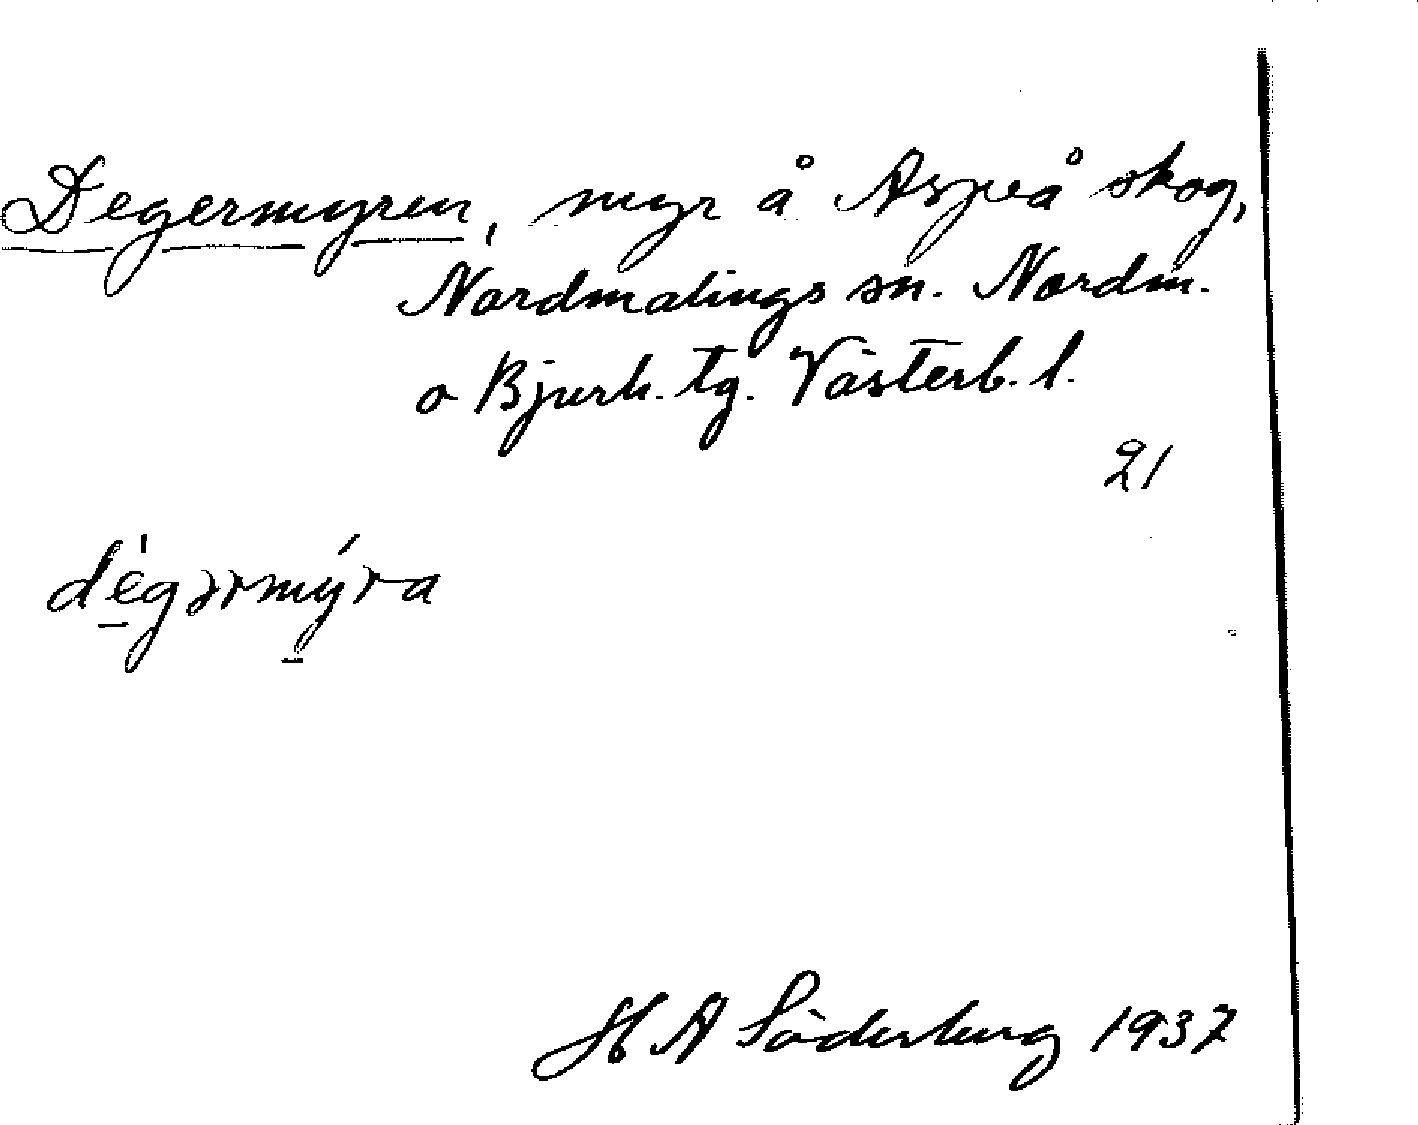 Degermyren, myr å Aspeå skog,
Nordmalings sn. Nordm.
o Bjurh. tg. Västerb. l.
21
dégərmýra
H A Söderberg 1937